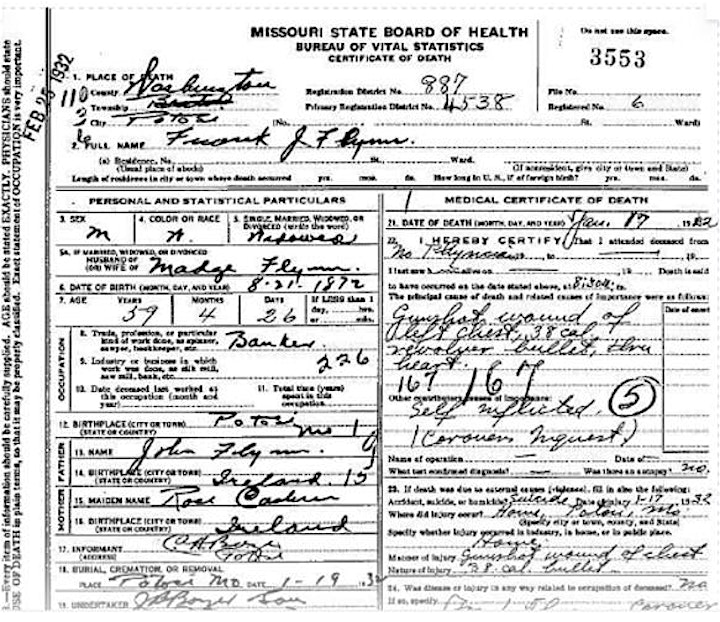 MISSOURI STATE BOARD OF HEALTH
BUREAU OF VITAL STATISTICS
CERTIFICATE OF DEATH
Do not use this space.
3553
FEB 25 1932
1. PLACE OF DEATH
County Washington
Registration District No. 887
File No.
Township
Primary Registration District No. 4538
Registered No. 6
City Potosi (No. St. Ward)
2. FULL NAME Frank J Flynn.
(a) Residence, No. St. Ward.
(Usual place of abode) (If nonresident, give city or town and State)
Length of residence in city or town where death occurred yrs. mos. ds. How long in U. S., if of foreign birth? yrs. mos. ds.
PERSONAL AND STATISTICAL PARTICULARS
3. SEX
M
4. COLOR OR RACE
W.
5. SINGLE, MARRIED, WIDOWED, OR DIVORCED (write the word)
Widowed
5A. IF MARRIED, WIDOWED, OR DIVORCED
HUSBAND OF
(OR) WIFE OF Madge Flynn.
6. DATE OF BIRTH (MONTH, DAY, AND YEAR) 8-21-1872
7. AGE YEARS MONTHS DAYS If LESS than 1
59 4 26 day, hrs.
or min.
OCCUPATION
8. Trade, profession, or particular
kind of work done, as spinner,
sawyer, bookkeeper, etc. Banker
9. Industry or business in which
work was done, as silk mill,
saw mill, bank, etc. 226
10. Date deceased last worked at
this occupation (month and
year)
11. Total time (years)
spent in this
occupation
12. BIRTHPLACE (CITY OR TOWN) Potosi
(STATE OR COUNTRY) Mo
FATHER
13. NAME John Flynn.
14. BIRTHPLACE (CITY OR TOWN)
(STATE OR COUNTRY) Ireland
MOTHER
15. MAIDEN NAME Rose
16. BIRTHPLACE (CITY OR TOWN)
(STATE OR COUNTRY) Ireland
17. INFORMANT
(ADDRESS) Potosi
18. BURIAL, CREMATION, OR REMOVAL
PLACE Potosi Mo. DATE 1-19 1932
19. UNDERTAKER
MEDICAL CERTIFICATE OF DEATH
21. DATE OF DEATH (MONTH, DAY, AND YEAR) Jan. 17 1932
22. I HEREBY CERTIFY, That I attended deceased from
No Physician , 19 , to , 19
I last saw h alive on , 19 Death is said
to have occurred on the date stated above, at 8:30 m.
The principal cause of death and related causes of importance were as follows:
Date of onset
Gunshot wound of
left chest, 38 cal.
revolver bullet, thru
heart.
167 167
Other contributory causes of importance:
Self inflicted. 5
(Coroners Inquest)
Name of operation Date of
What test confirmed diagnosis? Was there an autopsy? No.
23. If death was due to external causes (violence), fill in also the following:
Accident, suicide, or homicide? Suicide Date of injury 1-17 1932
Where did injury occur? Home, Potosi, Mo.
(Specify city or town, county, and State)
Specify whether injury occurred in industry, in home, or in public place.
Home
Manner of injury Gunshot wound of chest
Nature of injury 38 cal. bullet
24. Was disease or injury in any way related to occupation of deceased? No
If so, specify
Coroner